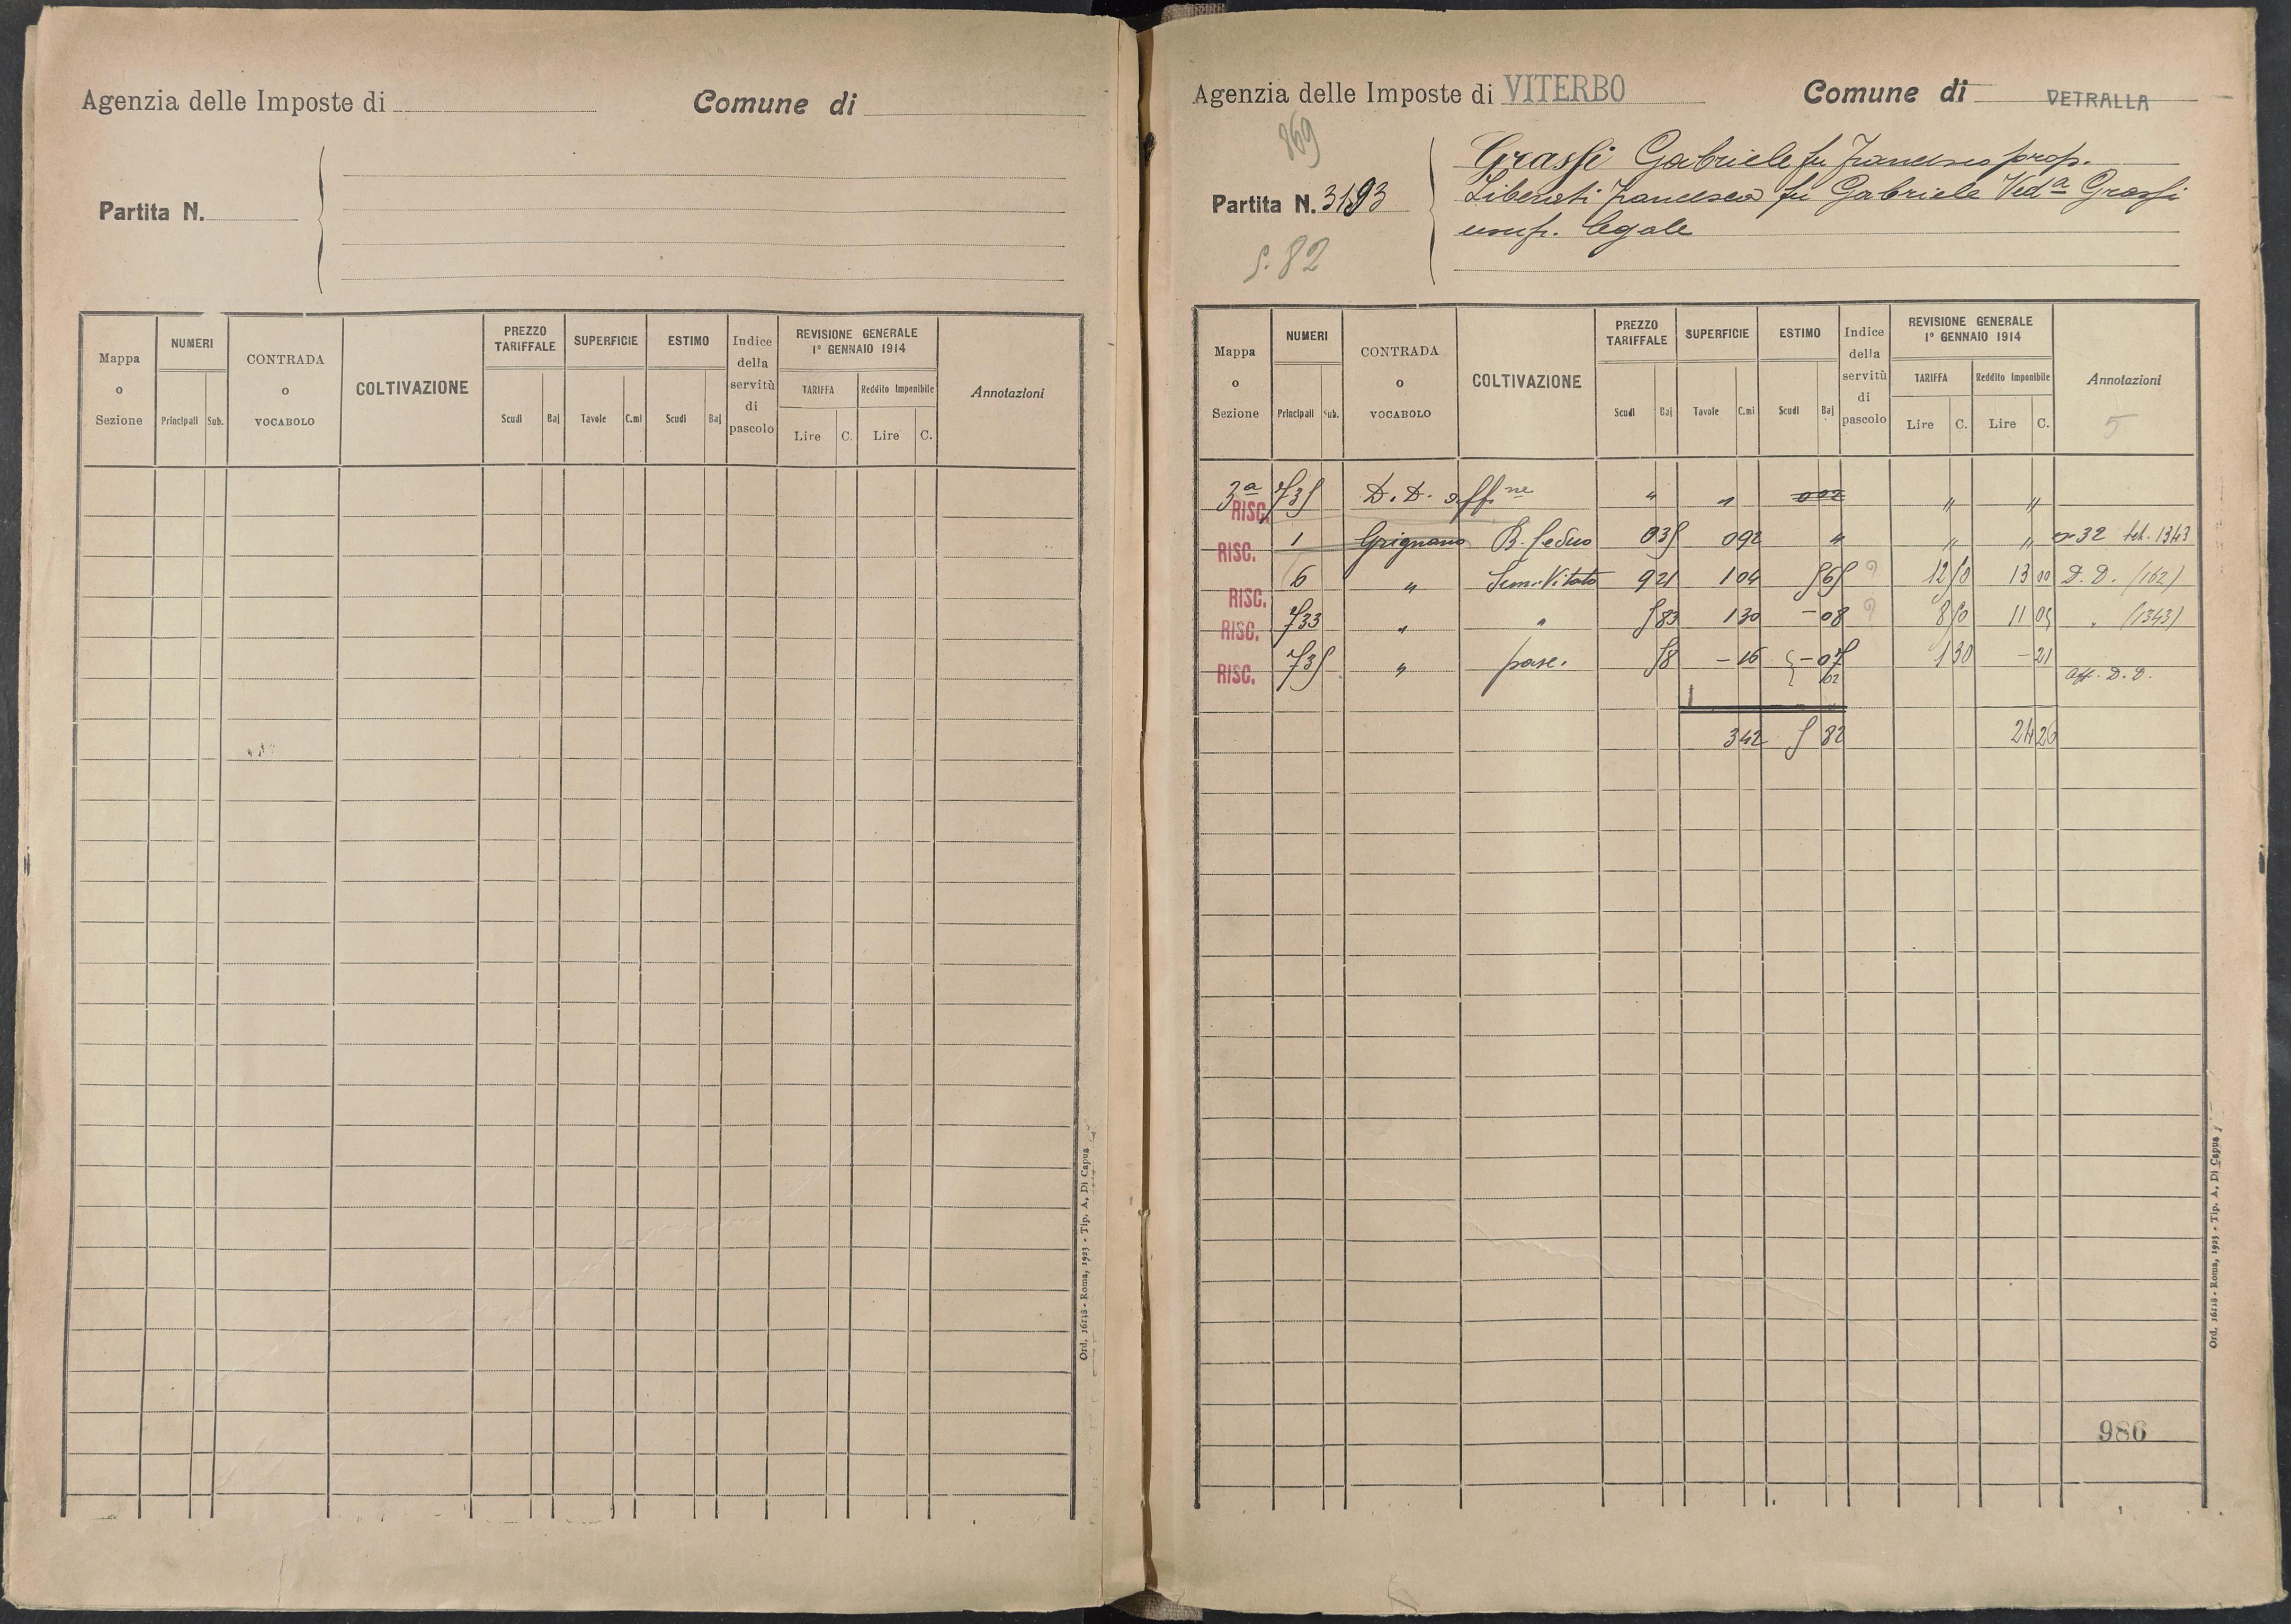 Agenzia delle Imposte di
Comune di
Partita N.
Mappa o Sezione
NUMERI
Principali Sub.
CONTRADA o VOCABOLO
COLTIVAZIONE
PREZZO TARIFFALE
Scudi Baj
SUPERFICIE
Tavole C.mi
ESTIMO
Scudi Baj
Indice della servitù di pascolo
REVISIONE GENERALE
1° GENNAIO 1914
TARIFFA Reddito Imponibile
Lire C. Lire C.
Annotazioni
Ord. 16118 - Roma, 1923 - Tip. A. Di Capua
Agenzia delle Imposte di VITERBO
Comune di VETRALLA
869
Partita N. 3193
5.82
Grassi Gabriele fu Francesco prop.
Liberati Francesca fu Gabriele Ved.a Grassi
usuf. legale
Mappa o Sezione
NUMERI
Principali Sub.
CONTRADA o VOCABOLO
COLTIVAZIONE
PREZZO TARIFFALE
Scudi Baj
SUPERFICIE
Tavole C.mi
ESTIMO
Scudi Baj
Indice della servitù di pascolo
REVISIONE GENERALE
1° GENNAIO 1914
TARIFFA Reddito Imponibile
Lire C. Lire C.
Annotazioni
5
3a 735 D. D. aff.ne " " 002 " "
RISC. 1 Grignano B. Ceduo 035 092 " " " 32 1343
RISC. 6 " Sem. Vitato 921 104 565 12 50 13 00 D. D. (162)
RISC. 733 " " 583 130 - 08 8 50 11 05 " (1343)
RISC. 735 " pasc. 58 - 16 - 07 1 30 - 21
RISC. 02 aff. D. D.
342 5 82 24 26
986
Ord. 16118 - Roma, 1923 - Tip. A. Di Capua